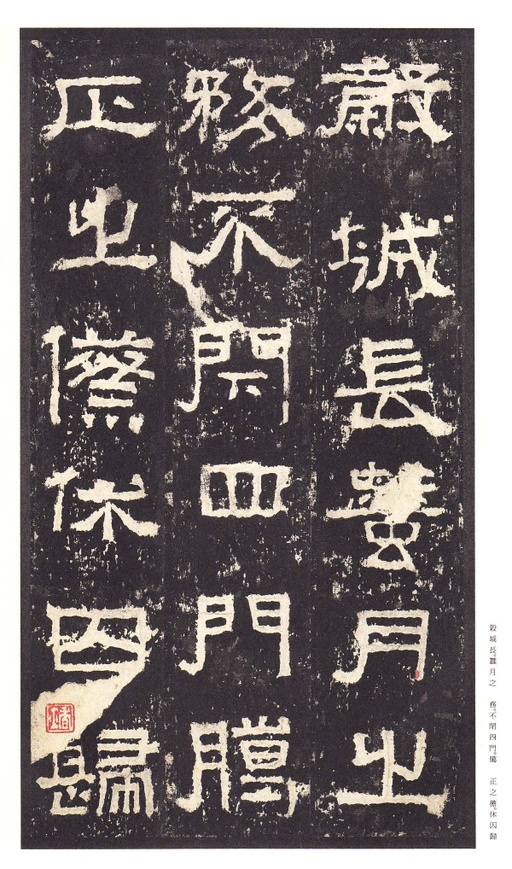 穀城長蠶月之
務不閉四門臘
正之傺休囚歸
穀城長。蠶月之　務。不閉四門。臘　正之傺。休囚歸